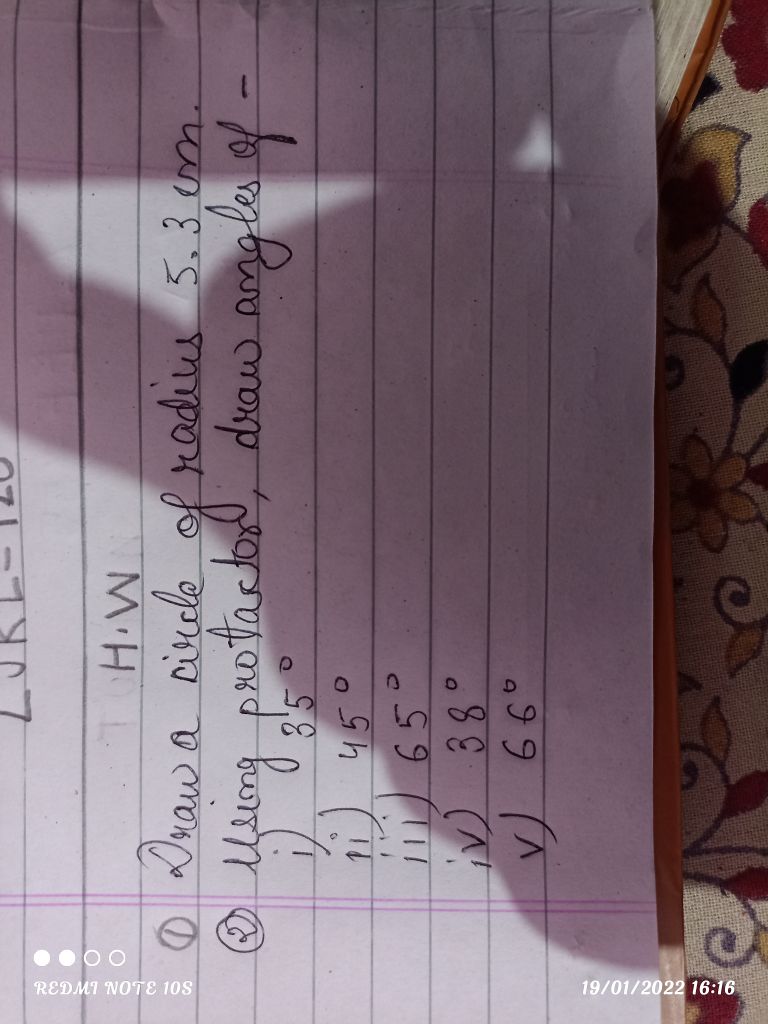 ∠JKL=120
H.W
① Draw a circle of radius 5.3 cm.
② Using protactor, draw angles of -
i) 35°
ii) 45°
iii) 65°
iv) 38°
v) 66°
REDMI NOTE 10S
19/01/2022 16:16